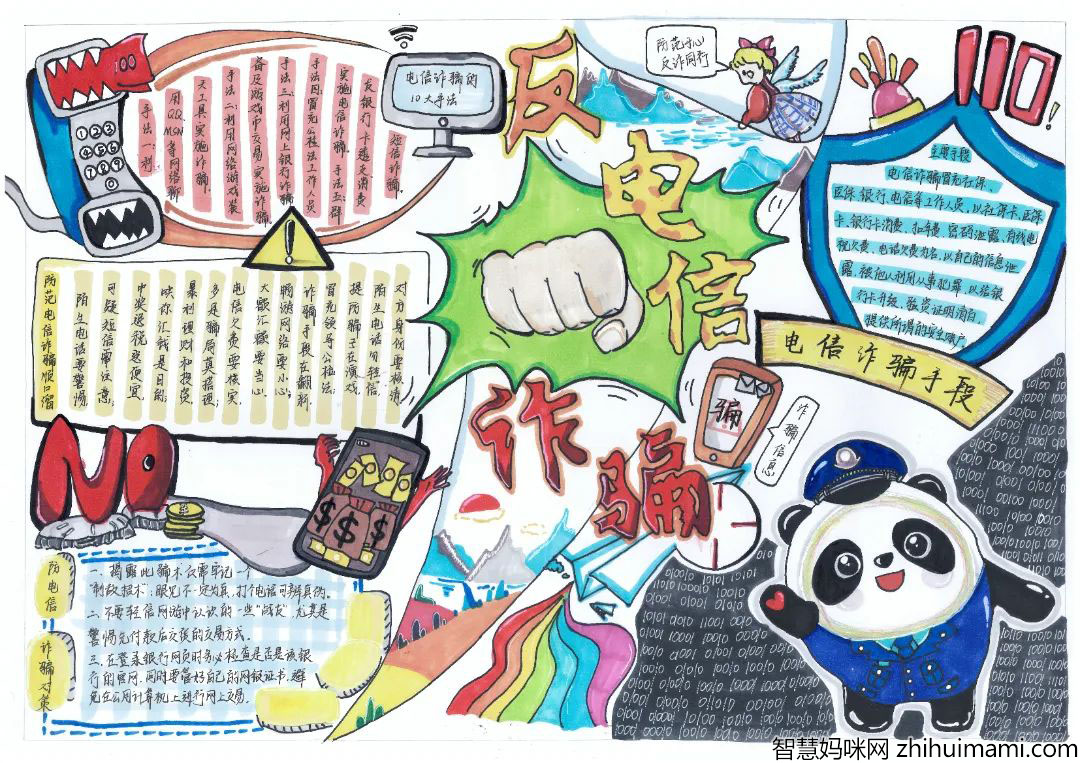 反电信诈骗
电信诈骗的
10大手法
手法一:利
用QQ、MSN等网络聊
天工具实施诈骗.
手法二:利用网络游戏装
备及游戏币交易实施诈骗.
手法三:利用网上银行诈骗
手法四:冒充公检法工作人员
实施电信诈骗.手法五:群
发银行卡透支消费
短信诈骗.
防范于心
反诈同行
110!
主要手段
电信诈骗冒充社保、
医保、银行、电信等工作人员,以社保卡、医保
卡、银行卡消费、扣年费、密码泄露、有线电
视欠费、电话欠费为名,以自己的信息泄
露,被他人利用从事犯罪,以给银
行卡升级、验资证明清白,
提供所谓的安全账户,
电信诈骗手段
防范电信诈骗顺口溜
陌生电话要警惕,
可疑短信需注意;
中奖退税送便宜,
哄你汇钱是目的;
暴利理财和投资,
多是骗局莫搭理;
电信欠费要核实,
大额汇款要当心;
畅游网络要小心;
诈骗手段在翻新,
冒充领导公检法,
提防骗子在演戏,
陌生电话勿轻信,
对方身份要核清
骗
诈骗信息
NO
$ $ $
防电信
诈骗对策
一、揭露此骗术仅需牢记一个
"制敌招术":眼见不一定为真,打个电话可辨真伪。
二、不要轻信网游中认识的一些"战友",尤其是
警惕先付款后交货的交易方式.
三、在登录银行网页时务必检查是否是该银
行的官网,同时要管好自己的网银证书,避
免在公用计算机上进行网上交易.
智慧妈咪网 zhihuimami.com